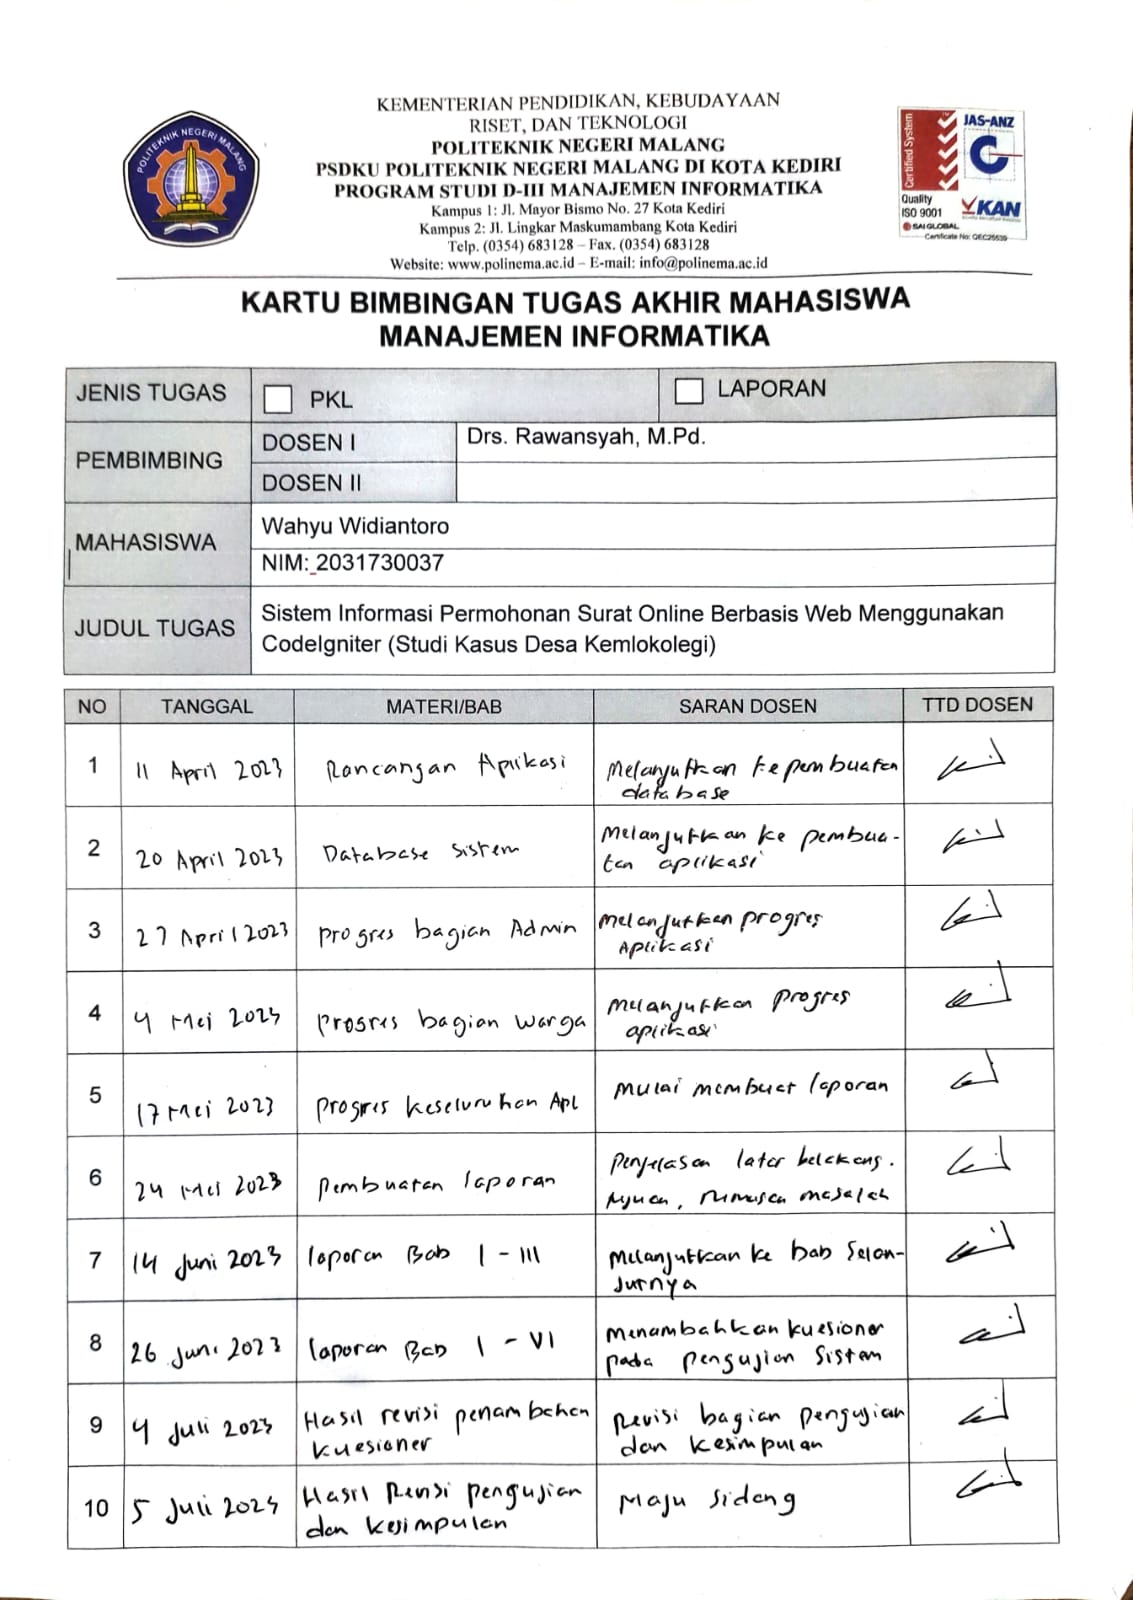 KEMENTERIAN PENDIDIKAN, KEBUDAYAAN
RISET, DAN TEKNOLOGI
POLITEKNIK NEGERI MALANG
PSDKU POLITEKNIK NEGERI MALANG DI KOTA KEDIRI
PROGRAM STUDI D-III MANAJEMEN INFORMATIKA
Kampus 1: Jl. Mayor Bismo No. 27 Kota Kediri
Kampus 2: Jl. Lingkar Maskumambang Kota Kediri
Telp. (0354) 683128 – Fax. (0354) 683128
Website: www.polinema.ac.id – E-mail: info@polinema.ac.id
POLITEKNIK NEGERI MALANG
Certified System
JAS-ANZ
Quality
ISO 9001
KAN
SAI GLOBAL
KARTU BIMBINGAN TUGAS AKHIR MAHASISWA
MANAJEMEN INFORMATIKA
JENIS TUGAS PKL LAPORAN
PEMBIMBING
DOSEN I Drs. Rawansyah, M.Pd.
DOSEN II
MAHASISWA
Wahyu Widiantoro
NIM: 2031730037
JUDUL TUGAS
Sistem Informasi Permohonan Surat Online Berbasis Web Menggunakan
CodeIgniter (Studi Kasus Desa Kemlokolegi)
NO TANGGAL MATERI/BAB SARAN DOSEN TTD DOSEN
1 11 April 2023 Rancangan Aplikasi Melanjutkan ke pembuatan
database
2 20 April 2023 Database Sistem Melanjutkan ke pembua-
tan aplikasi
3 27 April 2023 progres bagian Admin Melanjutkan progres
Aplikasi
4 4 Mei 2023 progres bagian warga Melanjutkan progres
aplikasi
5 17 Mei 2023 progres keseluruhan Apl Mulai membuat laporan
6 24 Mei 2023 pembuatan laporan Penjelasan latar belakang.
tujuan, rumusan masalah
7 14 Juni 2023 laporan Bab I - III Melanjutkan ke bab selan-
jutnya
8 26 Juni 2023 laporan Bab I - VI Menambahkan kuesioner
pada pengujian sistem
9 4 Juli 2023 Hasil revisi penambahan
kuesioner
revisi bagian pengujian
dan kesimpulan
10 5 Juli 2023 Hasil Revisi pengujian
dan kesimpulan
Maju Sidang